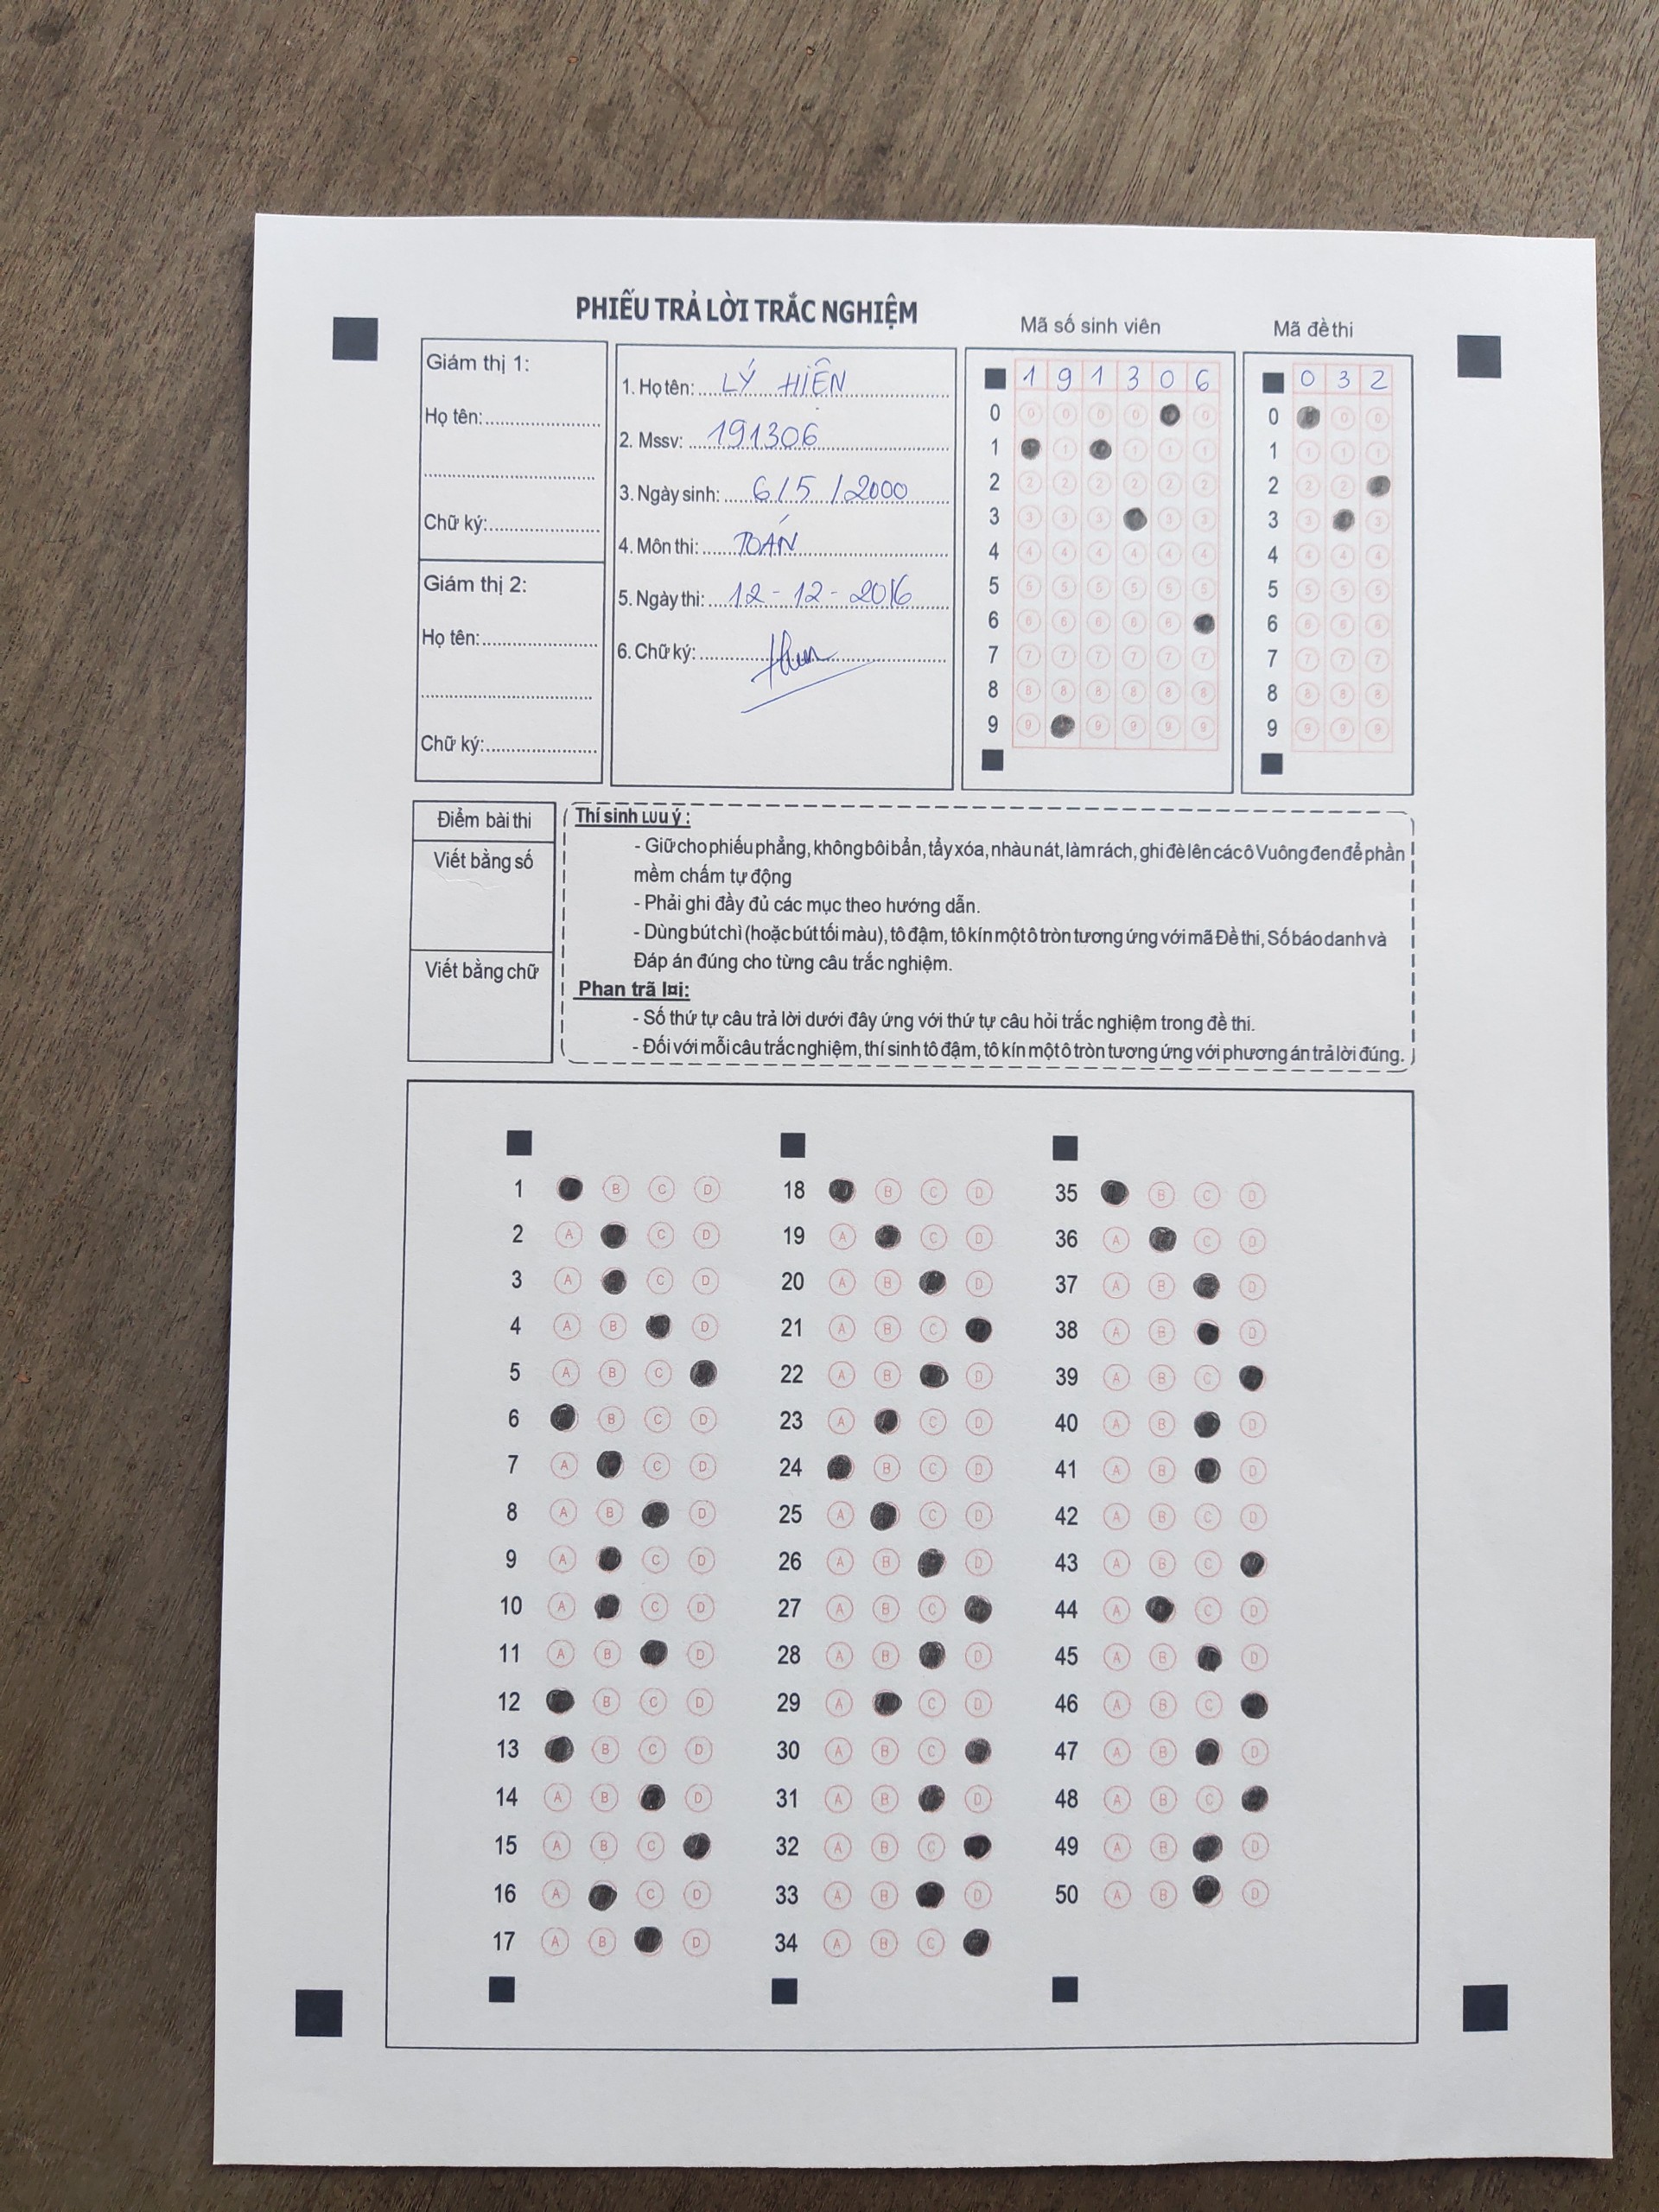 PHIẾU TRẢ LỜI TRẮC NGHIỆM
Giám thị 1:
Họ tên:
Chữ ký:
Giám thị 2:
Họ tên:
Chữ ký:
1. Họ tên: LÝ HIÊN
2. Mssv: 191306
3. Ngày sinh: 6/5/2000
4. Môn thi: TOÁN
5. Ngày thi: 12-12-2016
6. Chữ ký:
Mã số sinh viên
1 9 1 3 0 6
0 0 0 0 0 0
1 1 1 1 1
2 2 2 2 2 2 2
3 3 3 3 3 3
4 4 4 4 4 4 4
5 5 5 5 5 5 5
6 6 6 6 6 6
7 7 7 7 7 7 7
8 8 8 8 8 8 8
9 9 9 9 9 9
Mã đề thi
0 3 2
0 0 0
1 1 1 1
2 2 2
3 3 3
4 4 4 4
5 5 5 5
6 6 6 6
7 7 7 7
8 8 8 8
9 9 9 9
Điểm bài thi
Viết bằng số
Viết bằng chữ
Thí sinh LUu ý :
- Giữ cho phiếu phẳng, không bôi bẩn, tẩy xóa, nhàu nát, làm rách, ghi đè lên các ô Vuông đen để phần
mềm chấm tự động
- Phải ghi đầy đủ các mục theo hướng dẫn.
- Dùng bút chì (hoặc bút tối màu), tô đậm, tô kín một ô tròn tương ứng với mã Đề thi, Số báo danh và
Đáp án đúng cho từng câu trắc nghiệm.
Phan trã l¤i:
- Số thứ tự câu trả lời dưới đây ứng với thứ tự câu hỏi trắc nghiệm trong đề thi.
- Đối với mỗi câu trắc nghiệm, thí sinh tô đậm, tô kín một ô tròn tương ứng với phương án trả lời đúng.
1 B C D
2 A C D
3 A C D
4 A B D
5 A B C
6 B C D
7 A C D
8 A B D
9 A C D
10 A C D
11 A B D
12 B C D
13 B C D
14 A B D
15 A B C
16 A C D
17 A B D
18 B C D
19 A C D
20 A B D
21 A B C
22 A B D
23 A C D
24 B C D
25 A C D
26 A B D
27 A B C
28 A B D
29 A C D
30 A B C
31 A B D
32 A B C
33 A B D
34 A B C
35 B C D
36 A C D
37 A B D
38 A B D
39 A B C
40 A B D
41 A B D
42 A B C D
43 A B C
44 A C D
45 A B D
46 A B C
47 A B D
48 A B C
49 A B D
50 A B D